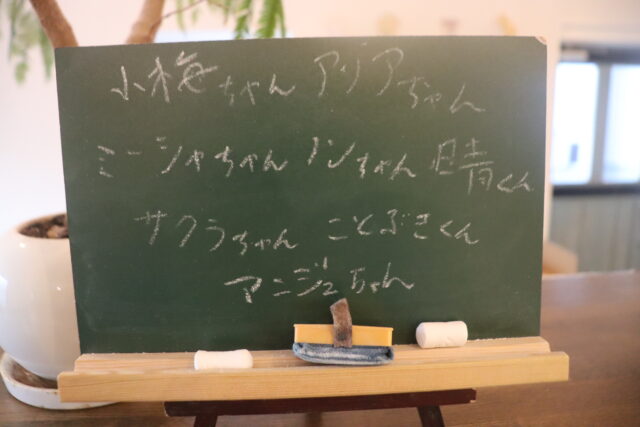 小梅ちゃん アリアちゃん
ミーシャちゃん ノンちゃん 晴くん
サクラちゃん ことぶきくん
アンジュちゃん